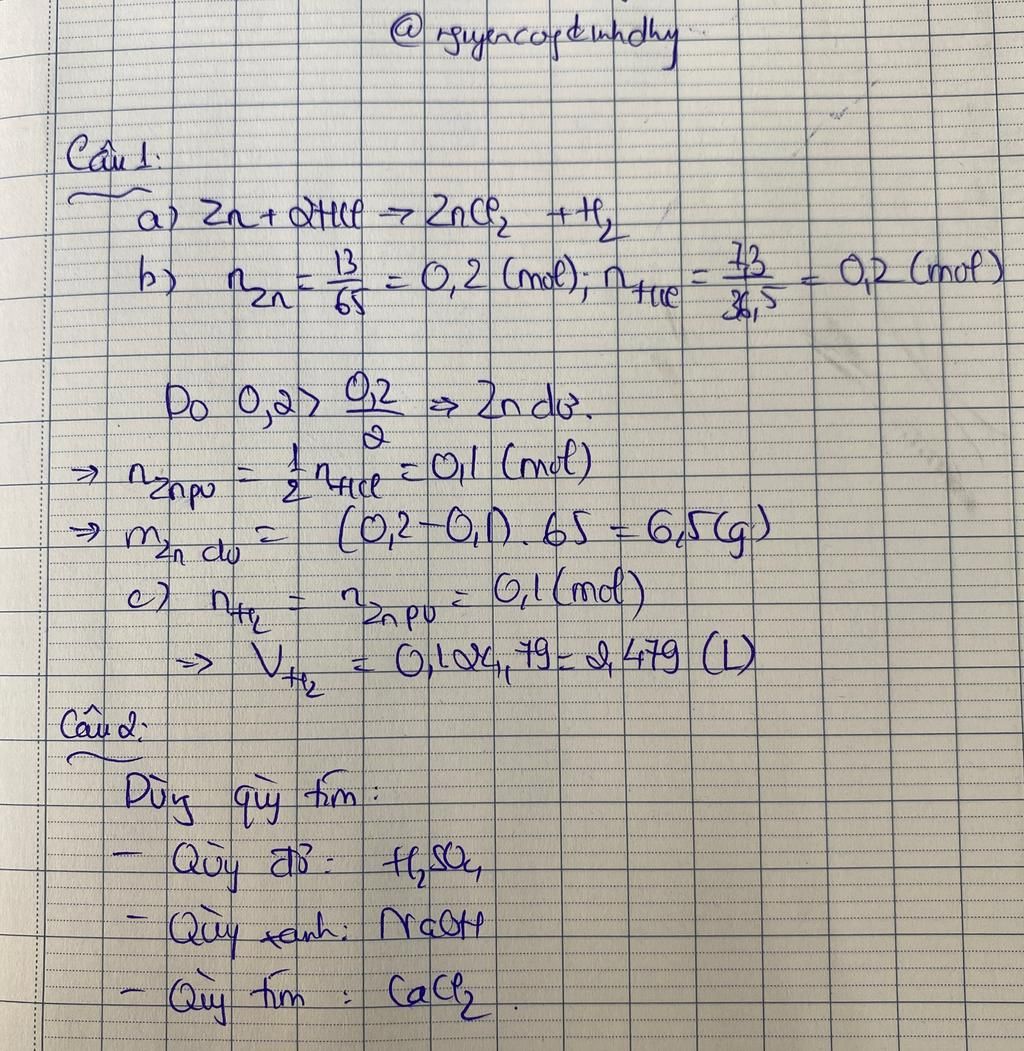 @nguyencaptinhdhy
Câu 1:
a) Zn + 2HCl → ZnCl₂ + H₂
b) n_Zn = 13/65 = 0,2 (mol); n_HCl = 7,3/36,5 = 0,2 (mol)
Do 0,2 > 0,2/2 ⇒ Zn dư.
⇒ n_Zn pư = 1/2 n_HCl = 0,1 (mol)
⇒ m_Zn dư = (0,2 - 0,1). 65 = 6,5 (g)
c) n_H₂ = n_Zn pư = 0,1 (mol)
⇒ V_H₂ = 0,1.24,79 = 2,479 (L)
Câu 2:
Dùng quỳ tím:
- Qùy đỏ: H₂SO₄
- Qùy xanh: NaOH
- Qùy tím : CaCl₂.